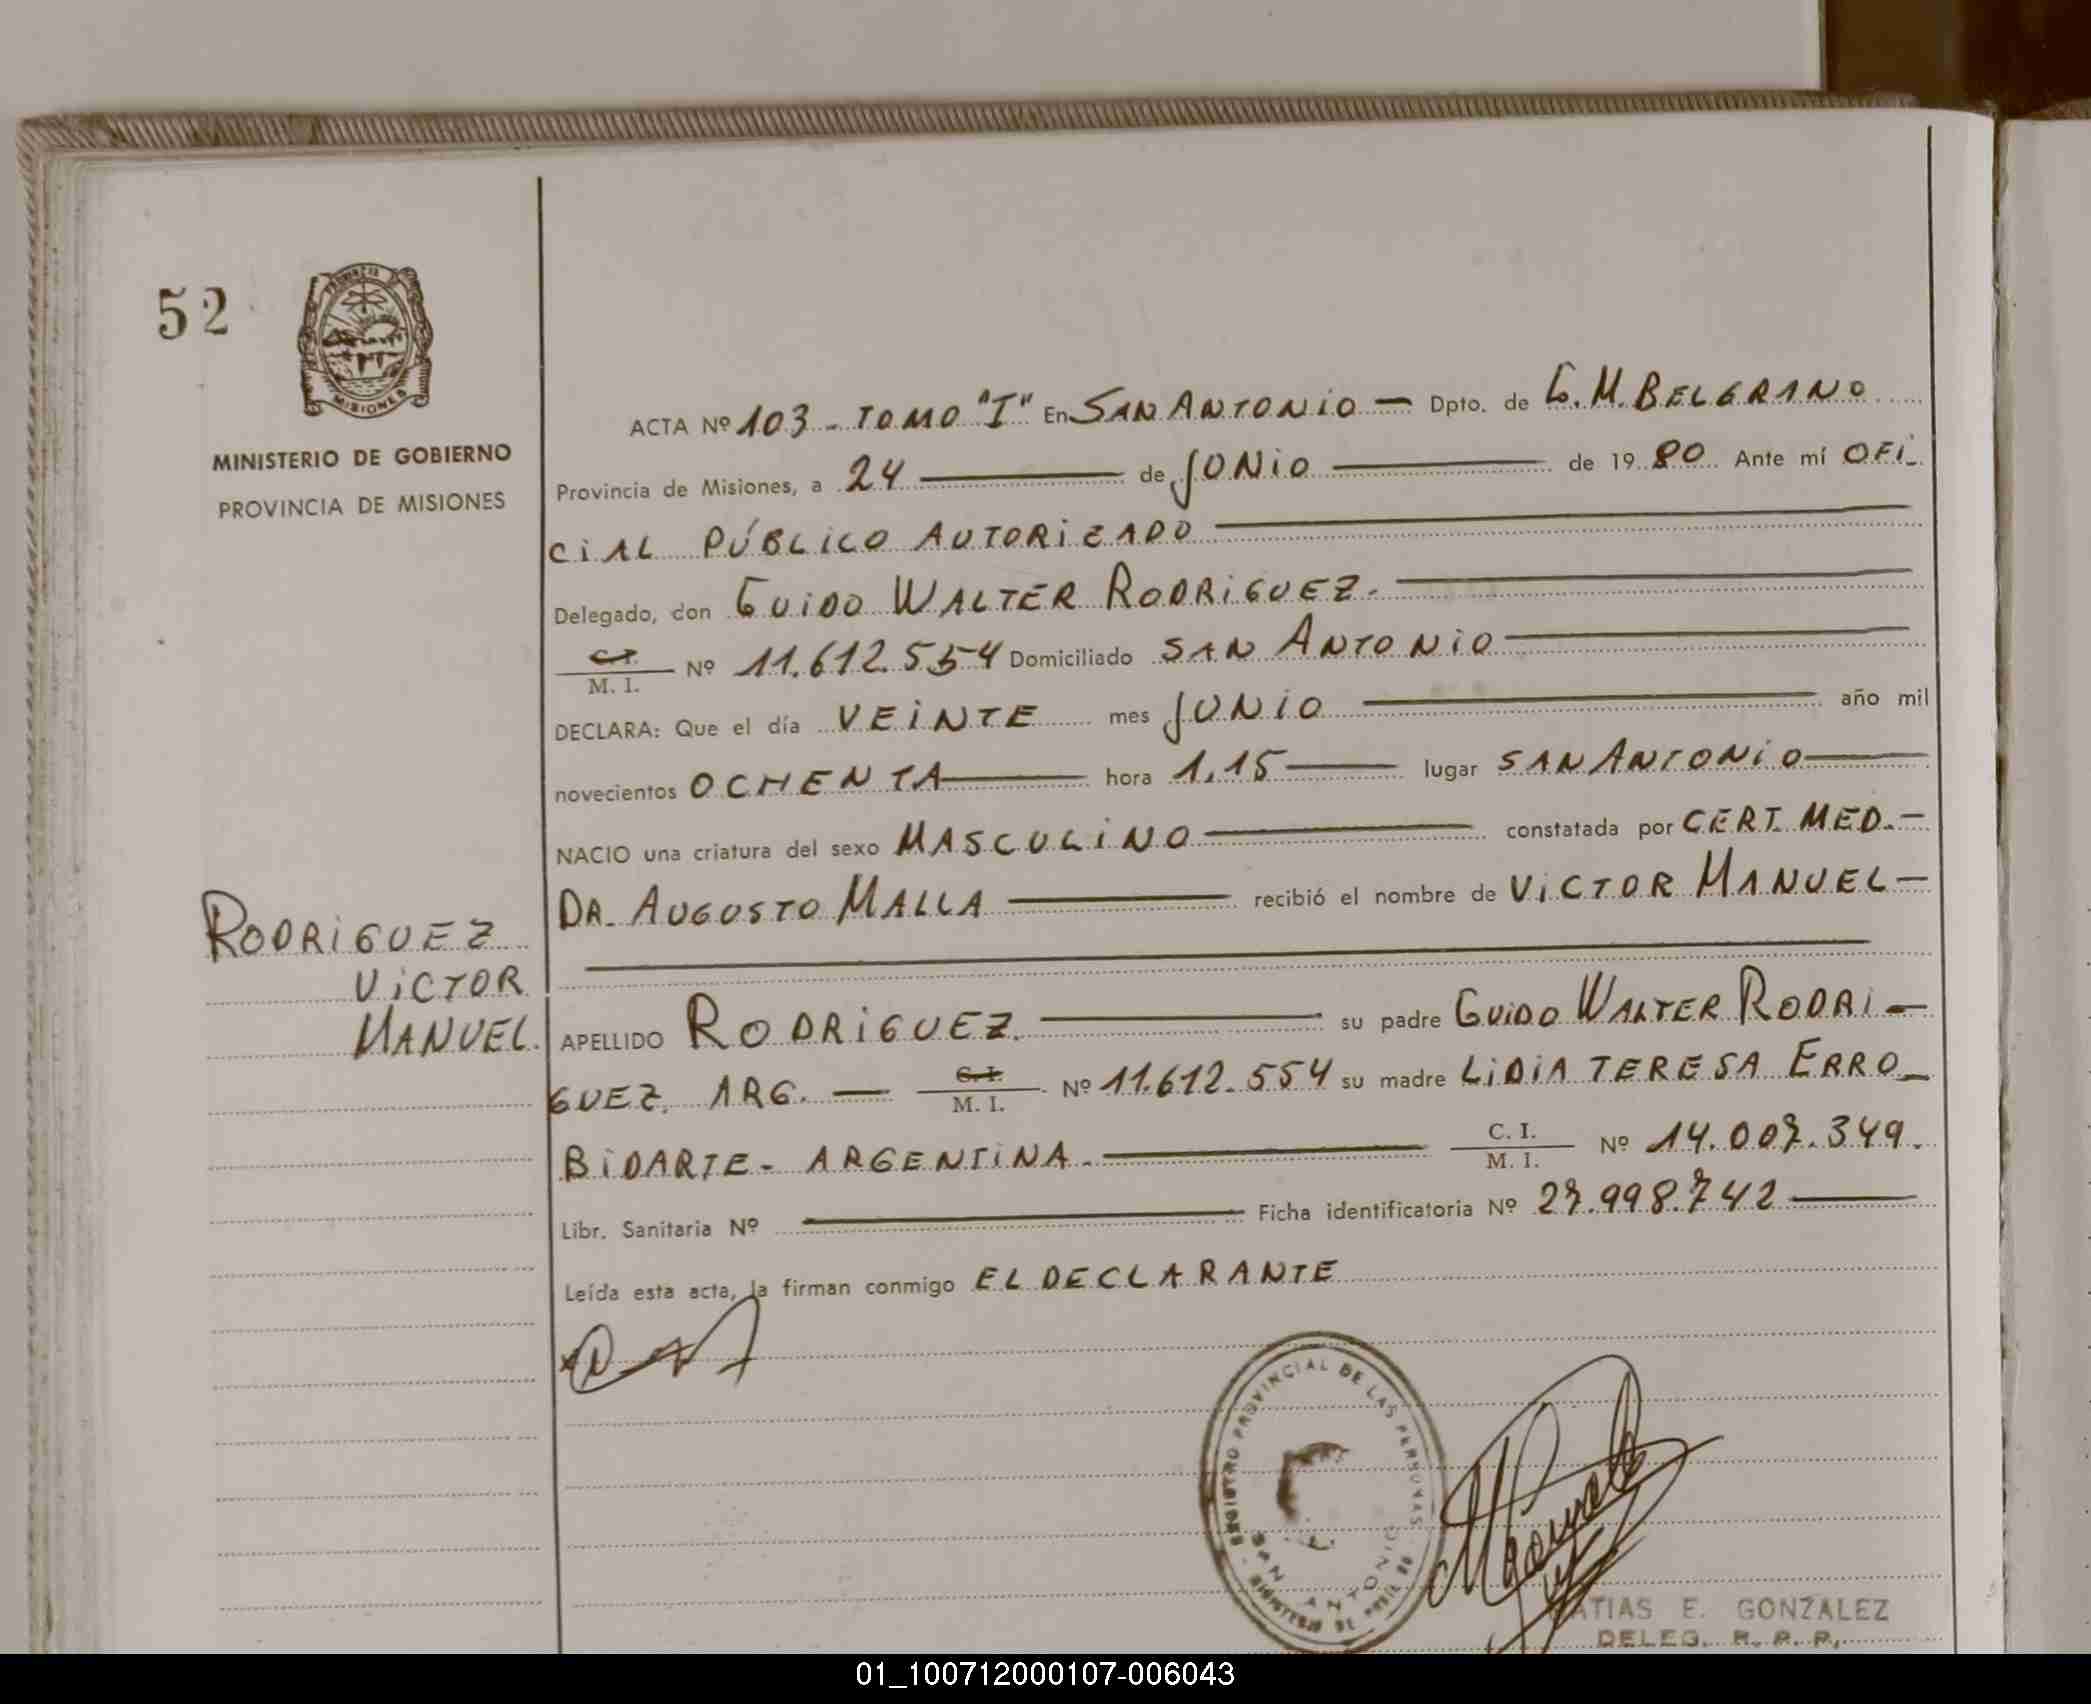 52
PROVINCIA
MISIONES
MINISTERIO DE GOBIERNO
PROVINCIA DE MISIONES
RODRIGUEZ
VICTOR
MANUEL.
ACTA Nº 103 - TOMO "I" En SAN ANTONIO — Dpto. de G. M. BELGRANO
Provincia de Misiones, a 24 — de JUNIO — de 19 80 Ante mí OFI-
CIAL PÚBLICO AUTORIZADO —
Delegado, don GUIDO WALTER RODRIGUEZ. —
C. I.
M. I. Nº 11.612.554 Domiciliado SAN ANTONIO —
DECLARA: Que el día VEINTE mes JUNIO — año mil
novecientos OCHENTA — hora 1.15 — lugar SAN ANTONIO —
NACIO una criatura del sexo MASCULINO — constatada por CERT. MED. —
DR. AUGUSTO MALLA — recibió el nombre de VICTOR MANUEL —
APELLIDO RODRIGUEZ. — su padre GUIDO WALTER RODRI —
GUEZ. ARG. — C. I.
M. I. Nº 11.612.554 su madre LIDIA TERESA ERRO-
BIDARTE - ARGENTINA. — C. I.
M. I. Nº 14.007.349.
Libr. Sanitaria Nº — Ficha identificatoria Nº 27.998.742 —
Leída esta acta, la firman conmigo EL DECLARANTE
REGISTRO PROVINCIAL DE LAS PERSONAS
SAN ANTONIO
MINISTERIO DE
ATIAS E. GONZALEZ
DELEG. R. P. P.
01_100712000107-006043